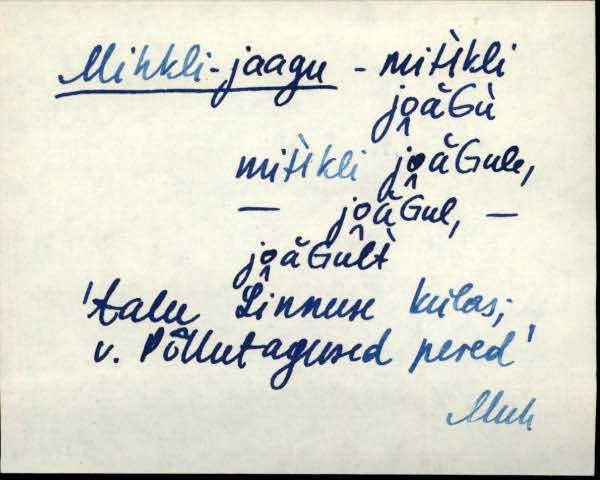 Mihkli-jaagu - mih̀kli
jo̭ăGù
mih̀kli jo̭ăGule,
— jo̭ăGul, —
jo̭ăGult̀
'talu Linnuse külas;
v. Põllutagused pered'
Muh